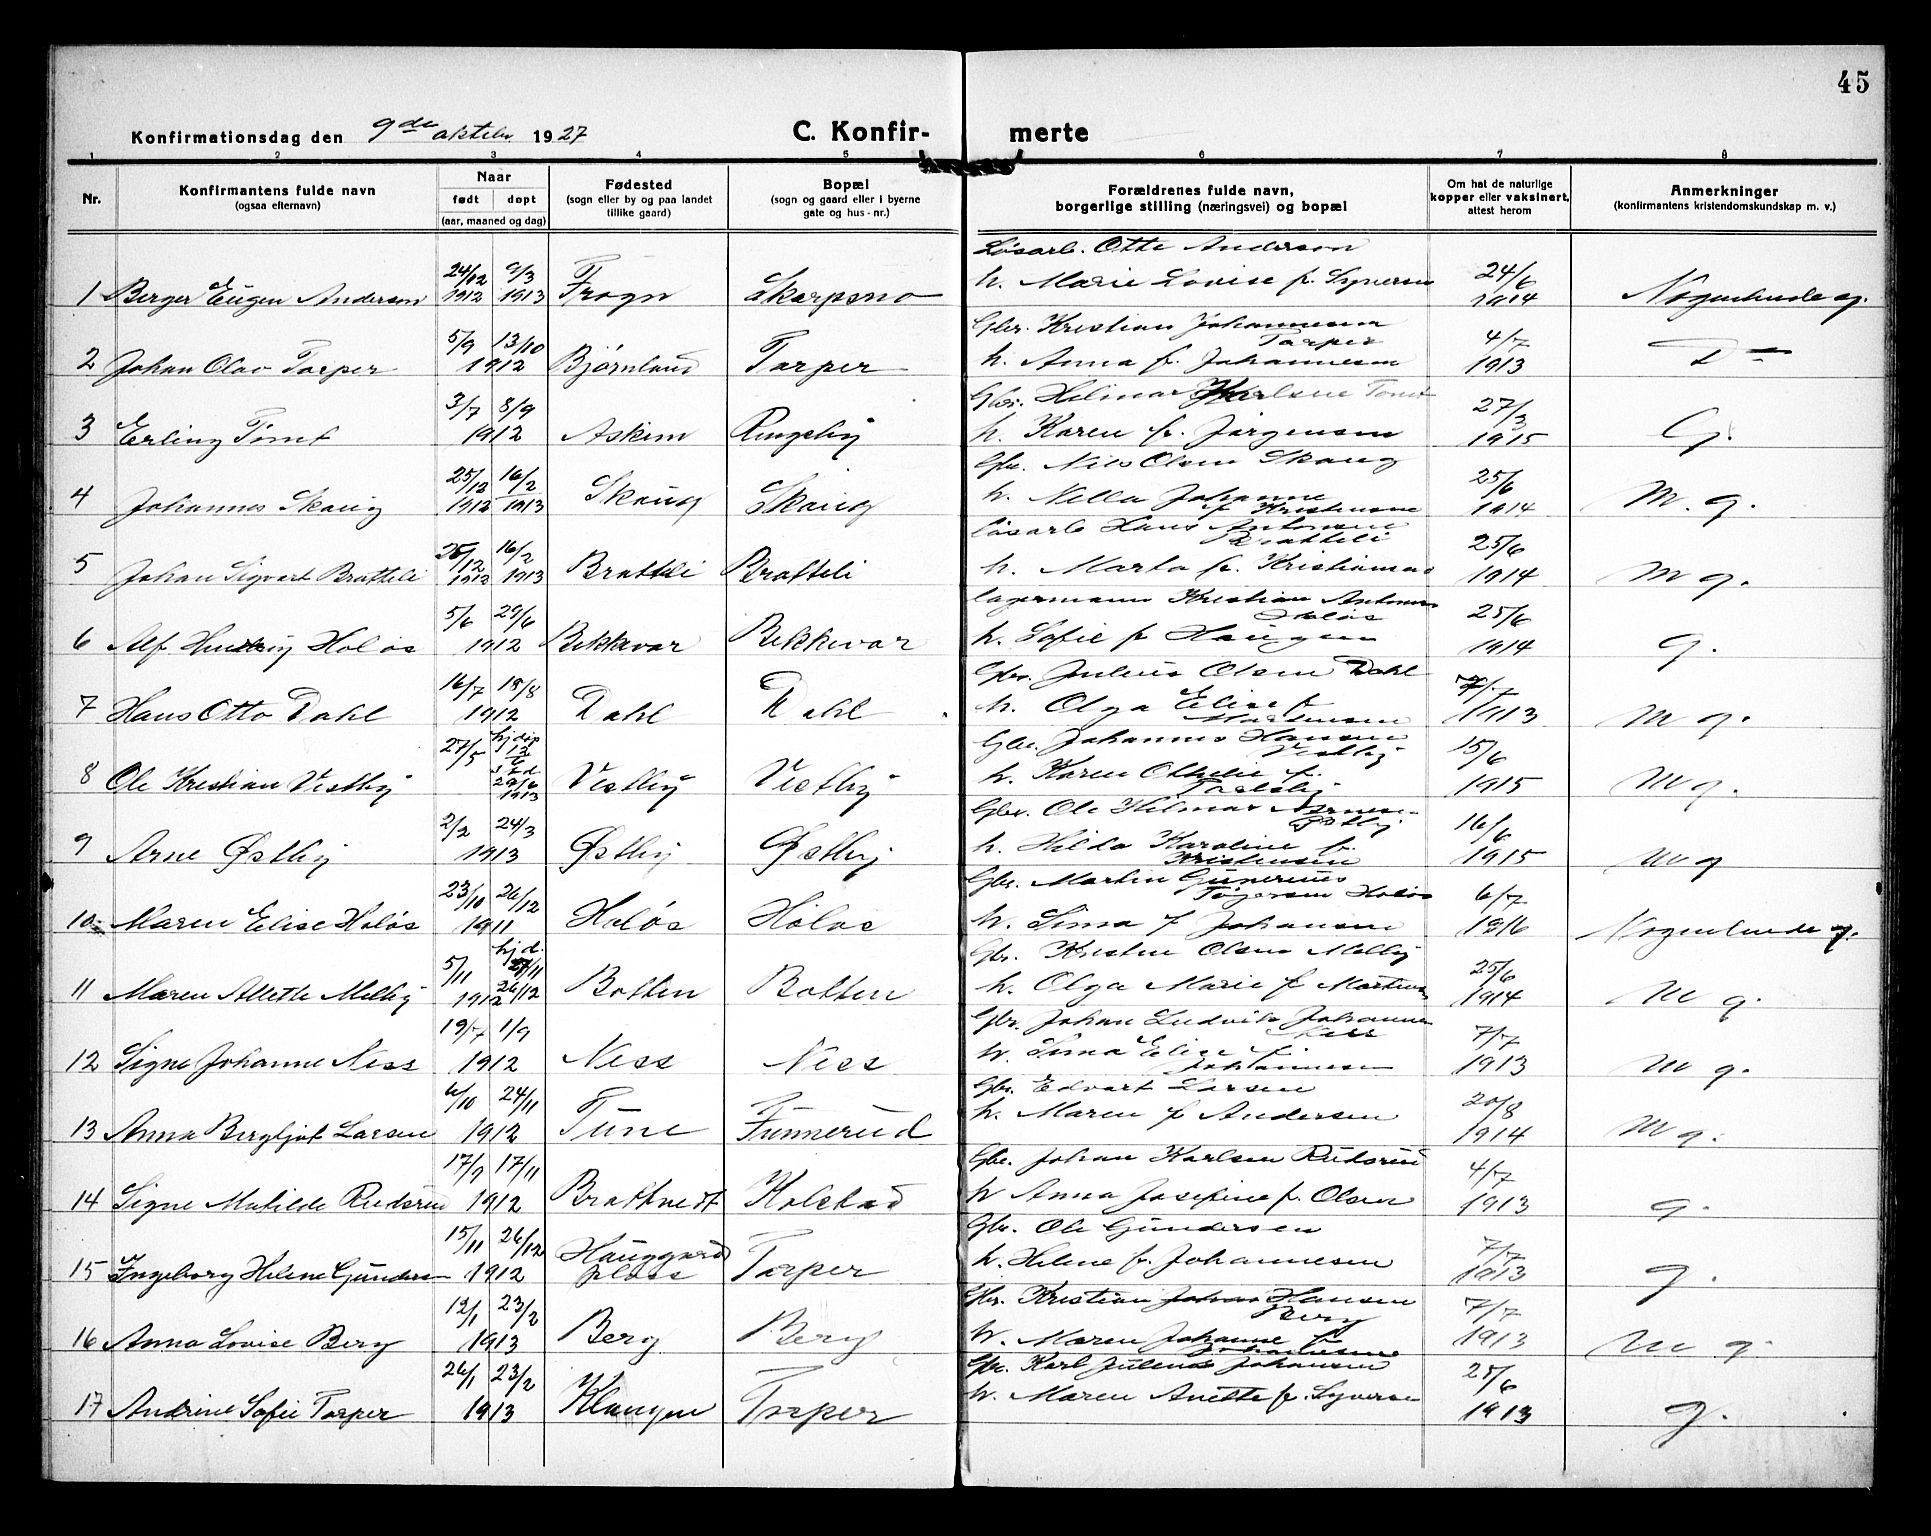 45
Konfirmationsdag den 9de oktobr. 1927
C. Konfir- merte
1 2 3 4 5 6 7 8
Nr.
Konfirmantens fulde navn
(ogsaa efternavn)
Naar
født døpt
(aar, maaned og dag)
Fødested
(sogn eller by og paa landet
tillike gaard)
Bopæl
(sogn og gaard eller i byerne
gate og hus-nr.)
Forældrenes fulde navn,
borgerlige stilling (næringsvei) og bopæl
Om hat de naturlige
kopper eller vaksinert,
attest herom
Anmerkninger
(konfirmantens kristendomskundskap m. v.)
Løsarb. Otto Anderson
24/12 9/3 h. Marie Lovise f. Syversen 24/6
1 Berger Eugen Anderson 1912 1913 Frogn Skarpsno 1914 Nogenlunde g.
Gbr. Kristian Johannesen
5/9 13/10 Tarper 4/7
2 Johan Olav Tarper 1912 Bjørnland Tarper h. Anna f. Johannesen 1913 D
3/7 8/9 Gbr. Hilmar Karlsen Tomt 27/3
3 Erling Tomt 1912 Askim Ringsby h. Karen f. Jørgensen 1915 G.
25/12 16/2 Gbr. Nils Olsen Skaug 25/6
4 Johannes Skaug 1912 1913 Skaug Skaug h. Nella Johanne 1914 M. g.
f. Kristensen
Løsarb Hans Antonsen
25/12 16/2 Bratteli 25/6
5 Johan Sigvart Bratteli 1912 1913 Bratteli Bratteli h. Marta f. Kristiansen 1914 M g.
Lagermann Kristian Antonsen
5/6 29/6 Holøs 25/6
6 Alf Henry Holøs 1912 Bekkevar Bekkevar h. Sofie f Haugen 1914 g.
16/7 18/8 Gbr. Julius Olsen Dahl 7/7
7 Hans Otto Dahl 1912 Dahl Dahl h. Olga Elise f 1913 M g.
Martinsen
27/5 hj.døp Gbr. Johannes Hansen
12/6 Vestby 15/6
8 Ole Kristian Vestby 29/6 1913 Vestby Vestby h. Karen Othilie f. 1915 M g.
Gbr. Ole Hilmar
2/2 24/3 Østby 16/6
9 Arne Østby 1913 Østby Østby h. Hilda Karoline f. 1915 M g
Kristensen
Gbr. Martin Gunerius
23/10 26/12 Tøgersen Holøs 6/7
10 Maren Elise Holøs 1911 Holøs Holøs h. Lina f Johansen 1916 Nogenlunde g.
hj.d.
5/11 27/11 Gbr. Kristen Olsen Melby 25/6
11 Maren Allette Melby 1912 26/12 Botten Botten h. Olga Marie f Martinsen 1914 M g.
19/7 1/9 Gbr. Johan Ludvik Johannesen
Ness 7/7
12 Signe Johanne Ness 1912 Ness Ness h. Lina Elise f. 1913 M g.
Johannesen
6/10 24/11 Gbr. Edvart Larsen 20/8
13 Anna Bergljot Larsen 1912 Tune Funnerud h. Maren f Andersen 1914 M g.
17/9 17/11 Gbr. Johan Karlsen Rudsrud 4/7
14 Signe Matilde Rudsrud 1912 Brattvedt Holstad h Anna Josefine f. Olsen 1913 g.
15/11 26/12 Gbr. Ole Gundersen 7/7
15 Ingeborg Helene Gundersen 1912 Hauggard plass Tarper h. Helene f. Johannesen 1913 g.
12/1 23/2 Gbr. Kristian Johan Hansen
Berg 7/7
16 Anna Lovise Berg 1913 Berg Berg h. Maren Johanne f 1913 M g.
Johannesen
26/1 23/2 Gbr. Karl Julius Johansen 25/6
17 Andrine Sofie Tarper 1913 Klangen Tarper h. Maren Anette f. Syversen 1913 g.